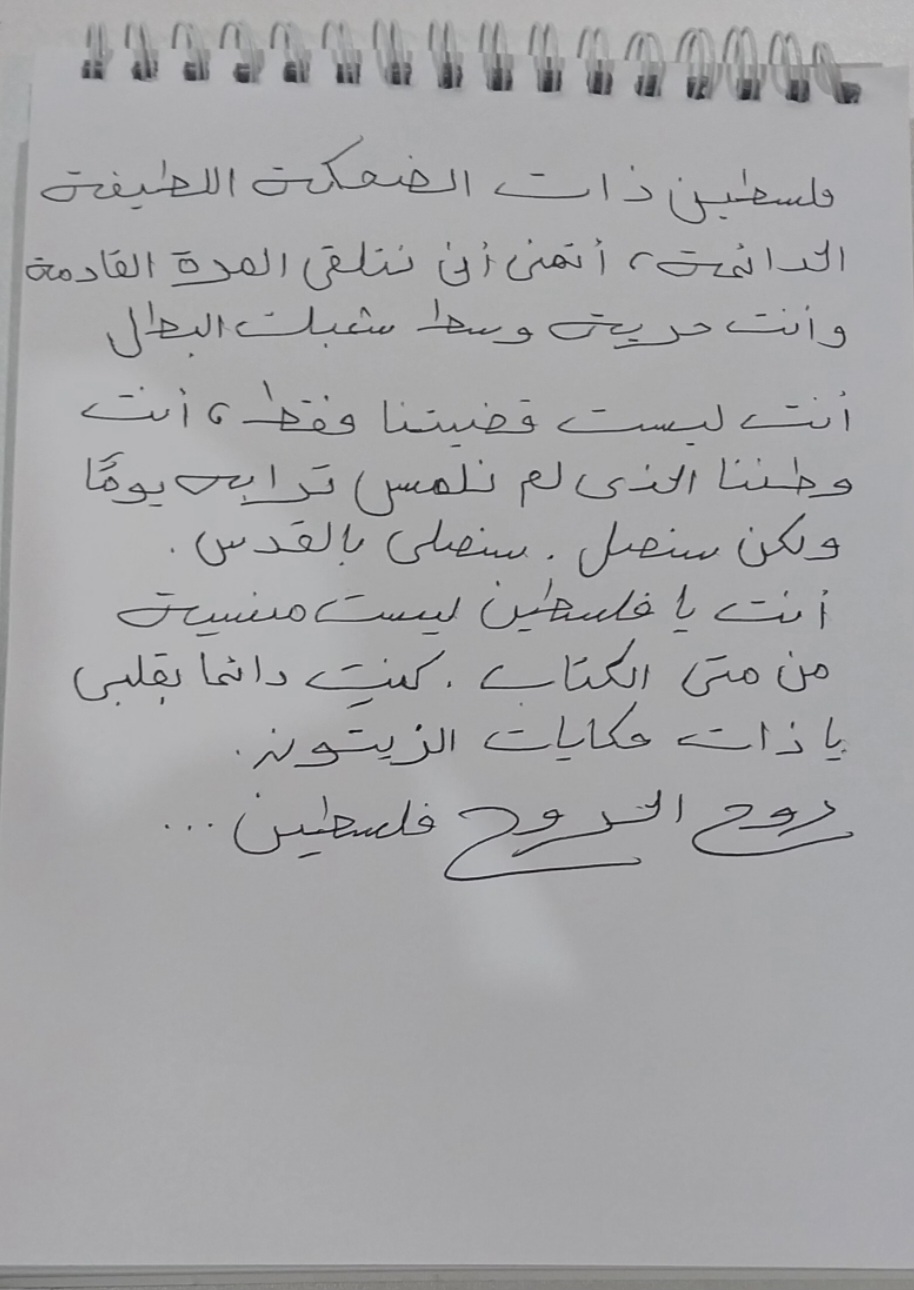 فلسطين ذات الضحكة اللطيفة
الدائمة، أتمنى أن نتلقى المرة القادمة
وأنت حرية وسط شعبك البطل
أنت ليست قضيتنا فقط، أنت
وطننا الذى لم نلمس ترابه يومًا
ولكن سنصل. سنصلى بالقدس.
أنت يا فلسطين ليست منسية
من متى الكتاب. كنتِ دائما بقلبى
يا ذات حكايات الزيتون.
روح الروح فلسطين...